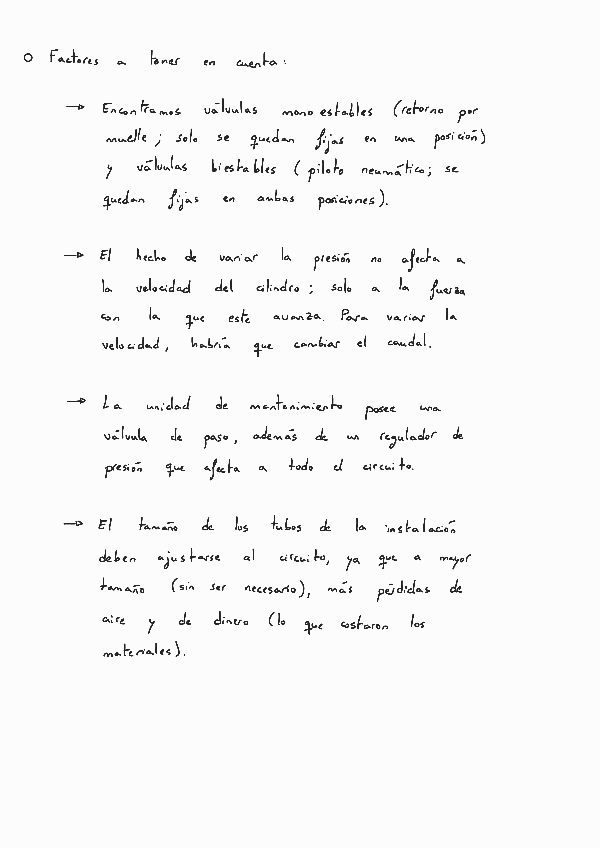 O Factores a tener en cuenta:
→ Encontramos válvulas monoestables (retorno por
muelle; solo se quedan fijas en una posición)
y válvulas biestables (piloto neumático; se
quedan fijas en ambas posiciones).
→ El hecho de variar la presión no afecta a
la velocidad del cilindro; solo a la fuerza
con la que este avanza. Para variar la
velocidad, habría que cambiar el caudal.
→ La unidad de mantenimiento posee una
válvula de paso, además de un regulador de
presión que afecta a todo el circuito.
→ El tamaño de los tubos de la instalación
deben ajustarse al circuito, ya que a mayor
tamaño (sin ser necesario), más pérdidas de
aire y de dinero (lo que costaron los
materiales).